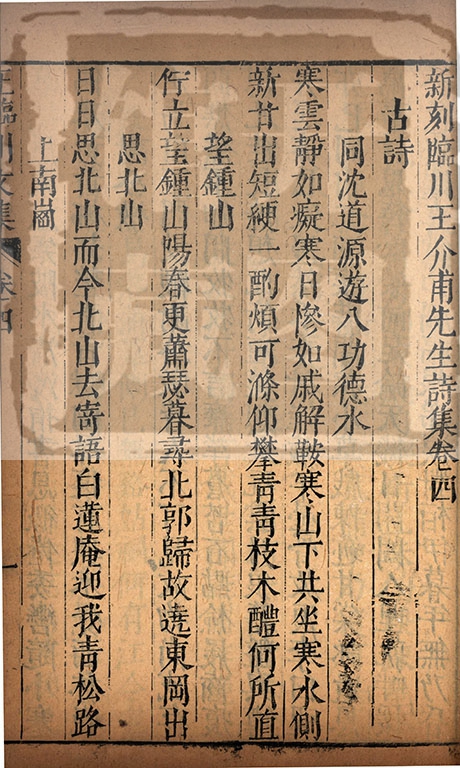 新刻臨川王介甫先生詩集卷四
古詩
同沈道源遊八功德水
寒雲靜如癡寒日慘如戚解鞍寒山下共坐寒水側
新甘出短綆一酌煩可滌仰攀青青枝木醴何所直
望鍾山
佇立望鍾山陽春更蕭瑟暮尋北郭歸故遶東岡出
思北山
日日思北山而今北山去寄語白蓮庵迎我青松路
上南崗
王臨川文集 卷十四
一